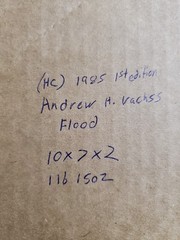 (HC) 1985 1st edition
Andrew H. Vachss
Flood
10x7x2
1lb 15oz